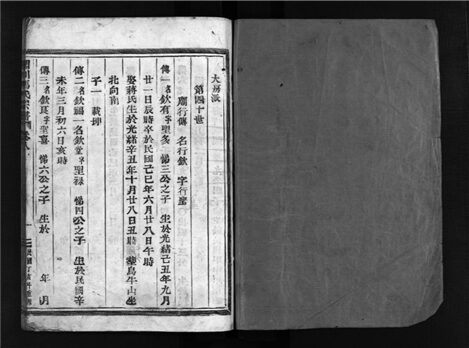 大房派
第四十世
廟行傳 名行欽 字行聖
傳一名欽有字聖多 錫三公之子 生於光緒己丑年九月
廿一日辰時卒於民國己巳年六月廿八日午時
娶蔣氏生於光緒辛丑年十月廿八日丑時 葬鳥牛山坐
北向南
子一 載坤
傳二名欽福一名欽堂字聖祿 錫四公之子 生於民國辛
未年三月初六日亥時
傳三名欽良字聖喜 錫六公之子 生於 年 月